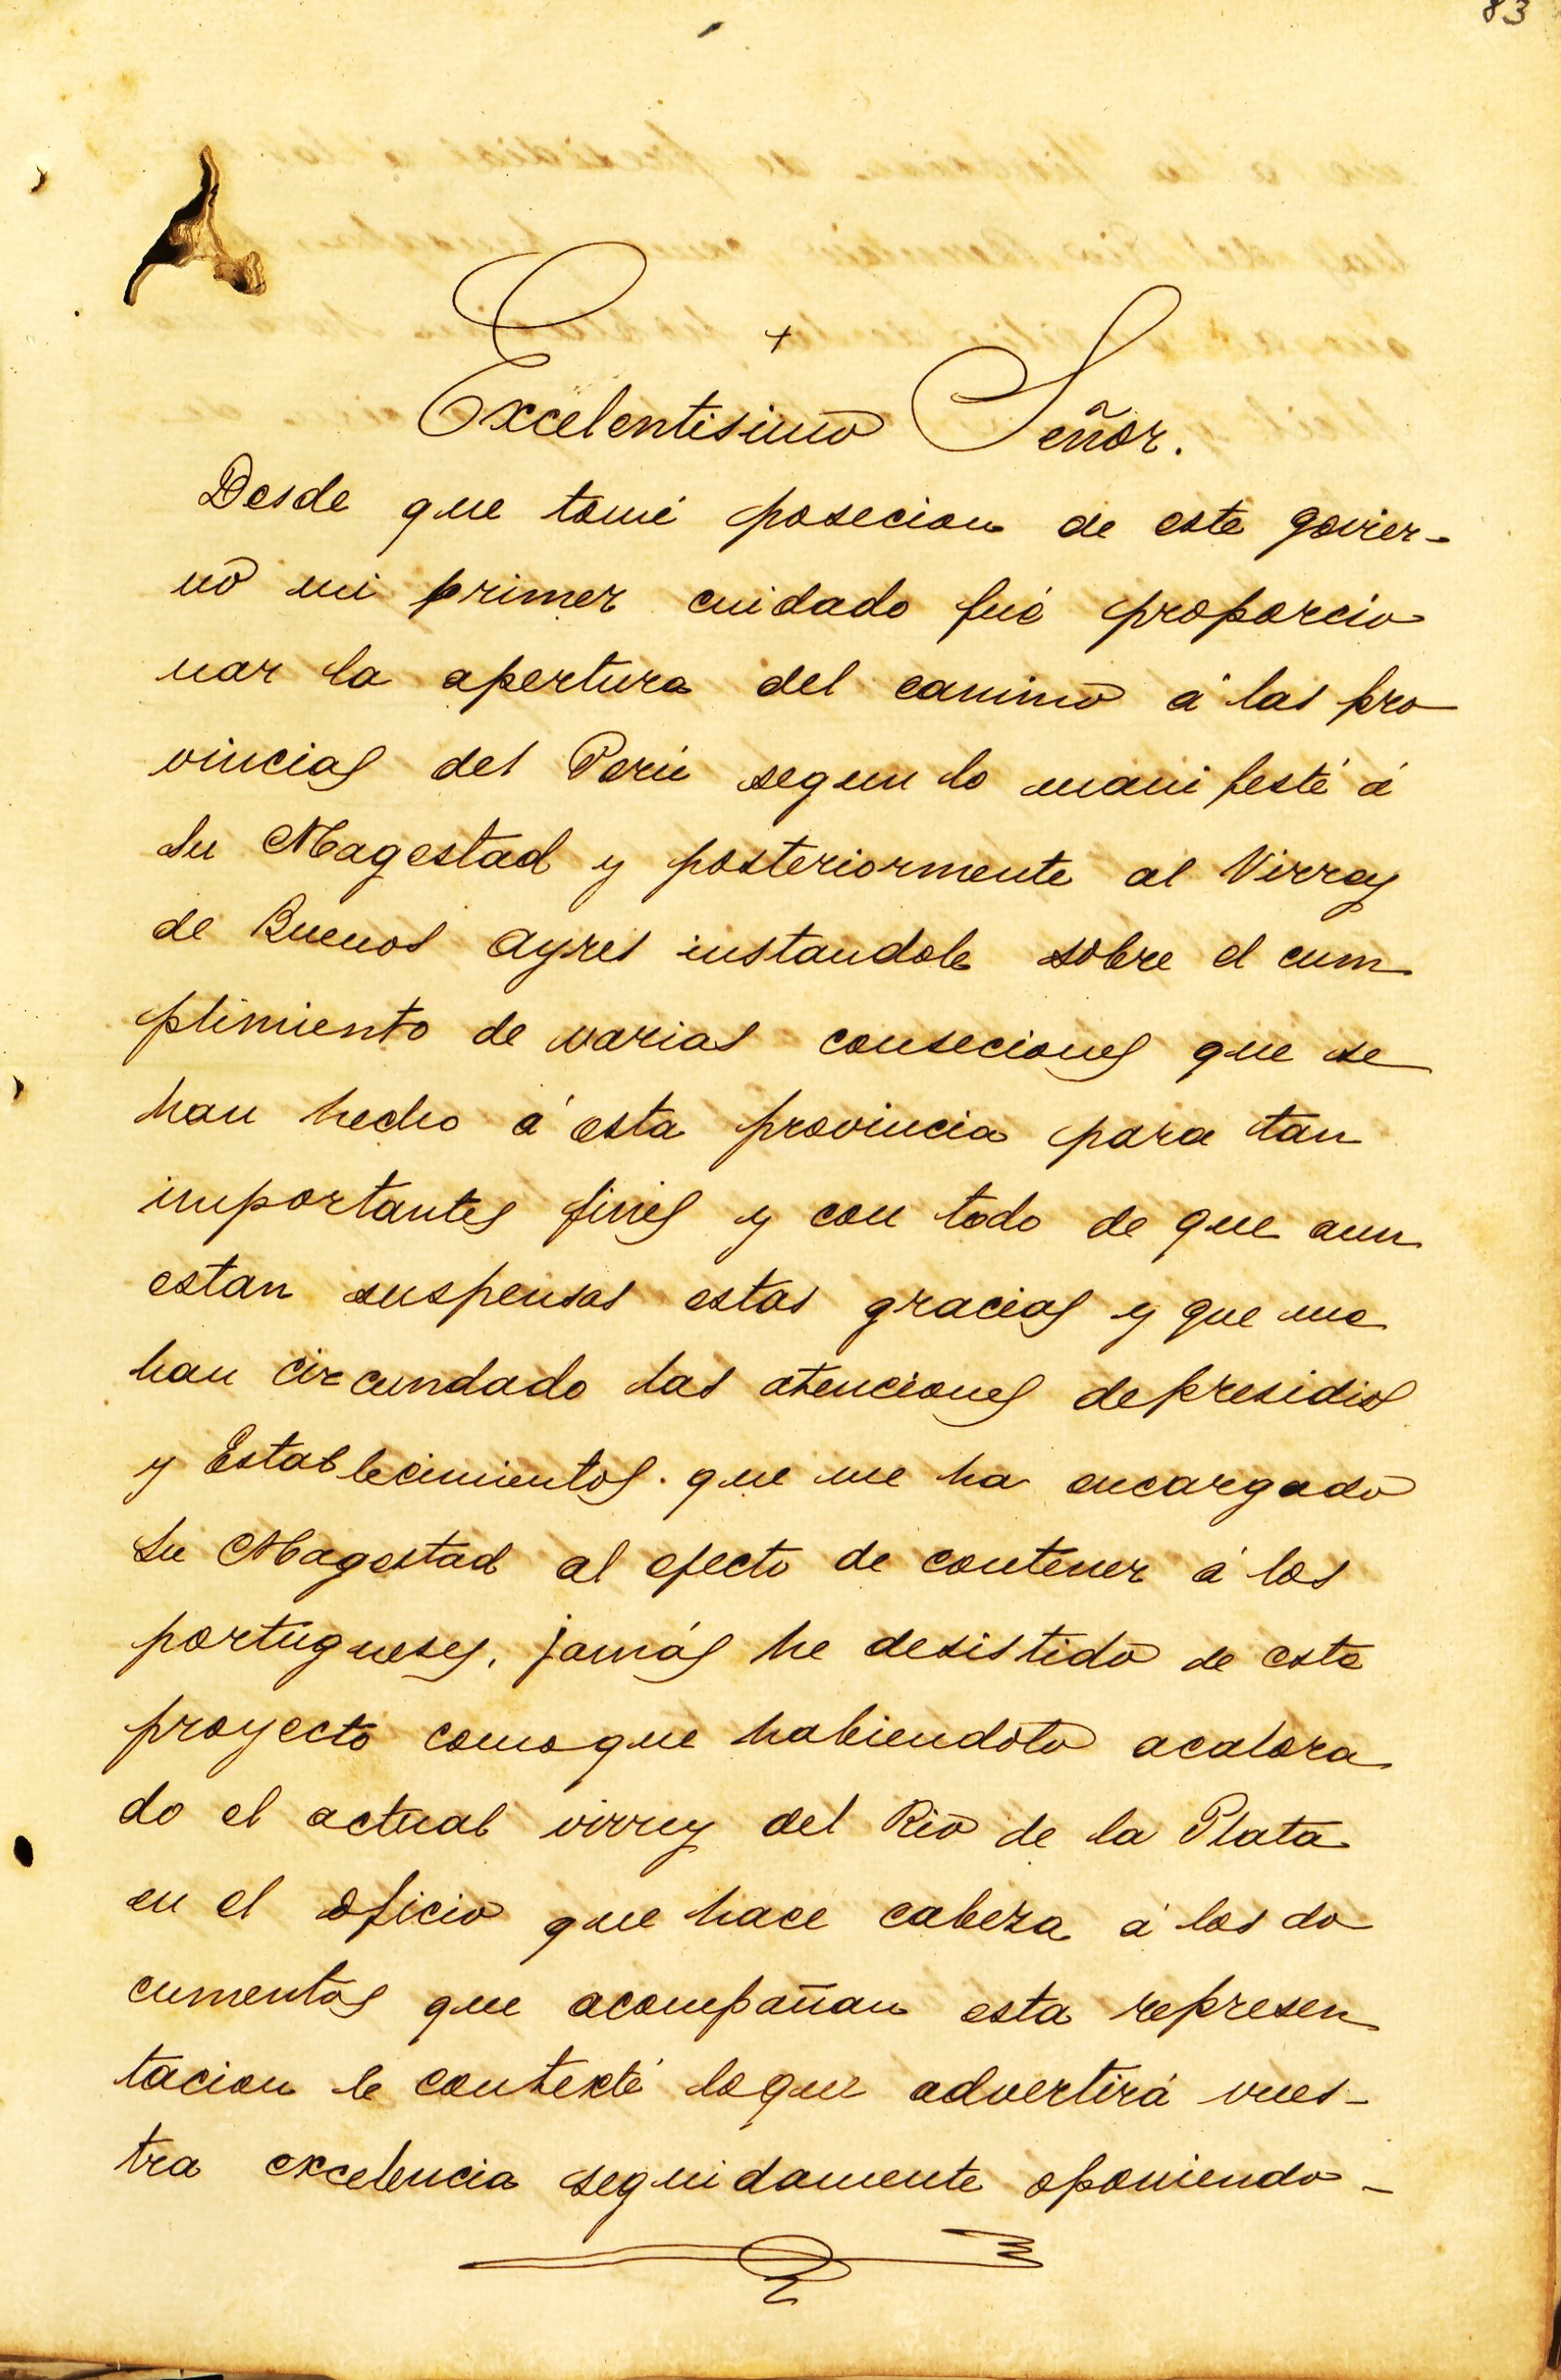 83
+
Excelentisimo Señor.
Desde que tomé posecion de este govier-
no mi primer cuidado fué proporcio
nar la apertura del camino á las pro
vincias del Perú segun lo manifesté á
Su Magestad y posteriormente al Virrey
de Buenos Ayres instandole sobre el cum
plimiento de varias conseciones que se
han hecho á esta provincia para tan
importantes fines y con todo de que aun
estan suspensas estas gracias y que me
han circundado las atenciones de presidios
y Establecimientos. que me ha encargado
Su Magestad al efecto de contener á los
portugueses, jamás he desistido de este
proyecto como que habiendolo acalora
do el actual virrey del Rio de la Plata
en el oficio que hace cabeza á los do
cumentos que acompañan esta represen
tacion le contexté loque advertirá vues-
tra excelencia seguidamente oponiendo-